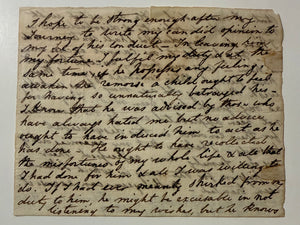 I hope to be strong enough after my
Journey to write my candid opinion to
my son of his conduct - In leaving him
my fortune I fulfil my duty at the
same time, if he possesses any feeling,
awaken the remorse a child ought to feel
for having so unnaturally betrayed his
I know that he was advised by those who
have always hated me but no advice
ought to have induced him to act as he
has done. He ought to have recollected
the misfortunes of my whole life & all that
I had done for him & all I was willing to
do. If I had ever meanly shirked from my
duty to him, he might be excusable in not
listening to my wishes, but he knows